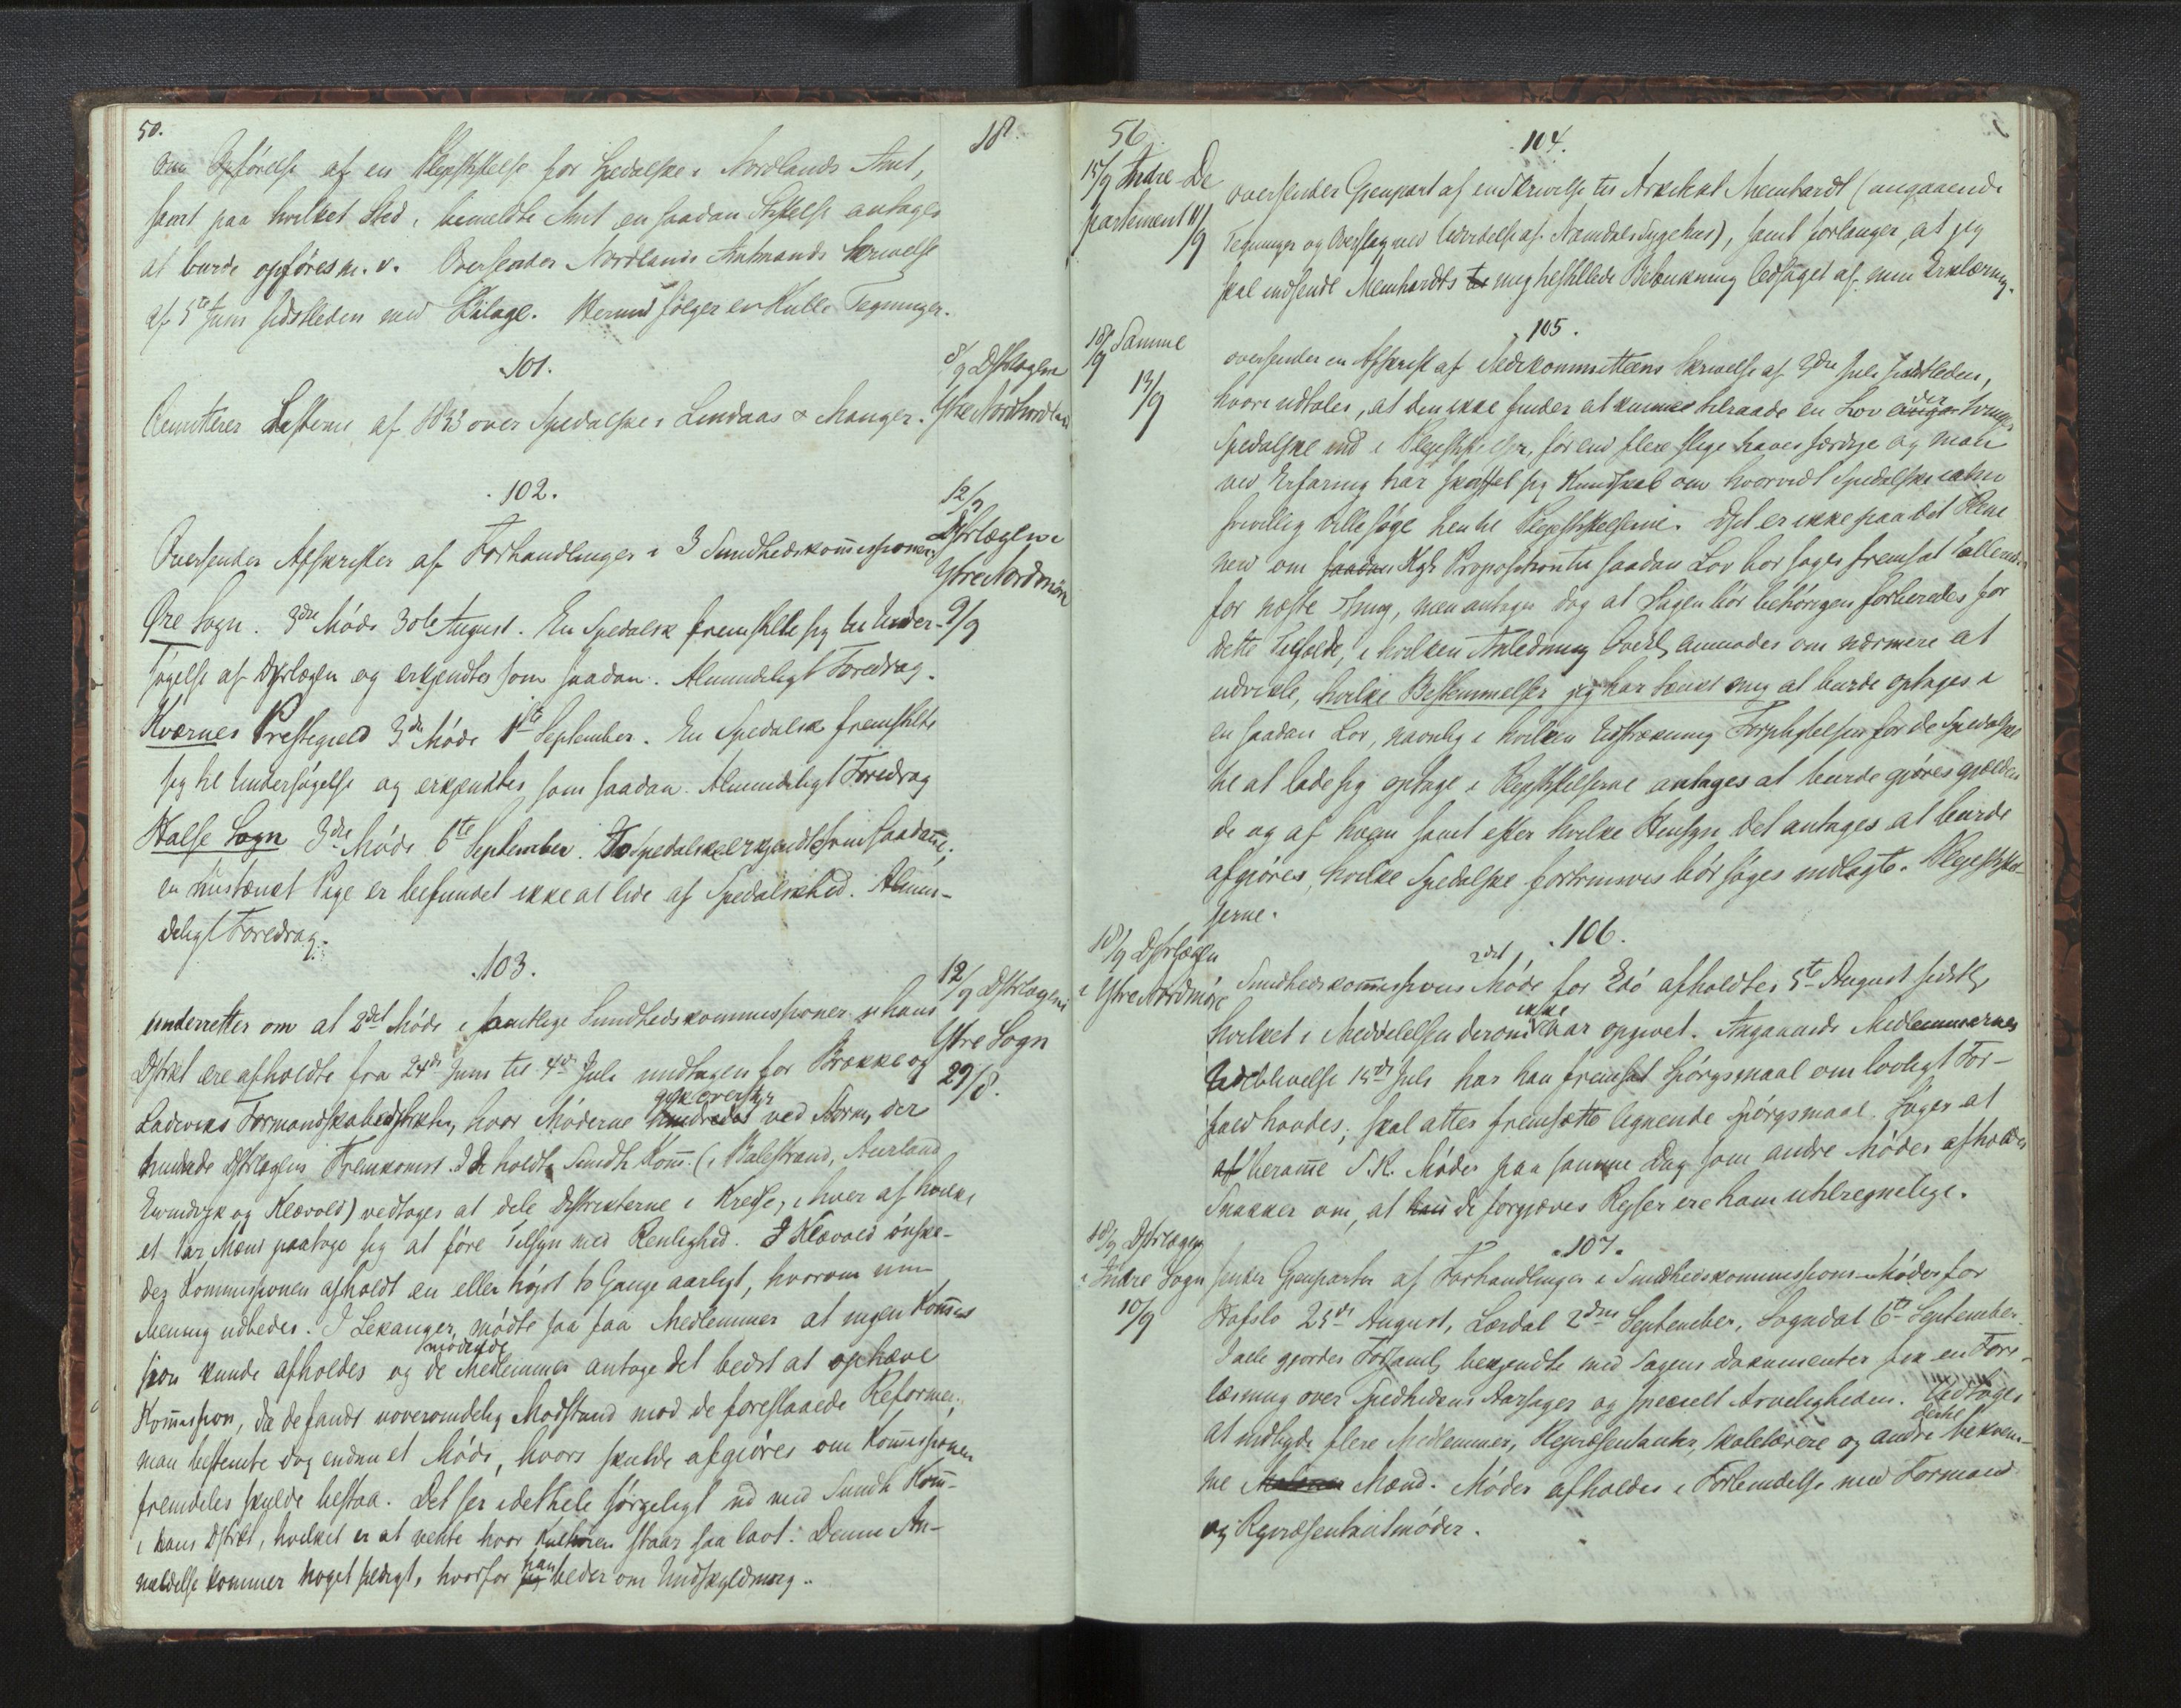 50.
18
Om Opförelse af en Plejestiftelse for Spedalske i Nordlands Amt,
samt paa hvilket Sted i bemeldte Amt en saadan Stiftelse antages
at burde opföres m. v. Oversender Nordlands Amtmands Skrivelse
af 5te Juni sidstleden med Bilage. Hermed fölger en Rulle Tegninger.
101.
8/9 Dstrlægen i
Ytre Nordhordland
Remitterer Listerne af 1833 over Spedalske i Lindaas & Manger.
102.
12/9
Dstrlægen i
Ytre Nordmör
9/9
Oversender Afskrifter af Forhandlinger i 3 Sundhedskommissioner
Öre Sogn. 3die Möde 30te August. En Spedalsk fremstillede sig til Under-
sögelse af Dstrlægen og erkjendtes som saadan. Almindeligt Foredrag.
Kværnes Prestegjeld 3die Möde 1ste September. En Spedalsk fremstilte
sig til Undersögelse og erkjendtes som saadan. Almindeligt Foredrag
Halse Sogn 3die Möde 6te September. To Spedalske erkjendte som saadanne;
en mistænkt Pige er befundet ikke at lide af Spedalskhed. Almin-
deligt Foredrag.
103.
12/9 Dstrlægen i
Ytre Sogn
29/8.
underretter om at 2det Möde i samtlige Sundhedskommissioner i hans
Dstrikt ere afholdte fra 24de Juni til 4de Juli undtagen for Brekke og
Ladviks Formandskabsdistrikter, hvor Möderne gik overstyr ved Storm, der
hindrede Dstrlægens Fremkomst. I de holdte Sundh Kom. (i Balestrand, Aurland
Evindvik og Klævold) vedtoges at dele Distrikterne i Kredse, i hver af hvilke
et Par Mænd paatoge sig at före Tilsyn med Renlighed. I Klævold önske-
des Kommissionen afholdt en eller höist to Gange aarligt, hvorom min
Mening udbedes. I Lekanger mödte saa faa Medlemmer at ingen Kommis
sion kunde afholdes og de mödende Medlemmer antoge det bedst at ophæve
Kommission, da de fandt uovervindelig Modstand mod de foreslaaede Reformer;
man bestemte dog endnu et Möde, hvori skulde afgjöres om Kommissionen
fremdeles skulde bestaa. Det ser idethele sörgeligt ud med Sundh Kom-
i hans Dstrikt, hvilket er at vente hvor Kulturen staar saa lavt. Denne An-
meldelse kommer noget sildigt, hvorfor han beder om Undskyldning.
56
104.
15/9 Indre-De
partement 11/9
oversender Gjenpart af en Skrivelse til Arkitekt Meinhardt (angaaende
Tegninger og Overslag ved Udvidelse af Namdals Sygehus), samt forlanger, at jeg
skal indsende Meinhardts til mig tilstillede Betænkning ledsaget af min Erklæring.
105.
18/9 Samme
13/9
oversender en Afskrift af Medkommitteens Skrivelse af 3die Juli sidstleden,
hvori udtales, at den ikke finder at kunne tilraade en Lov der tvinger
Spedalske ind i Plejestiftelser, förend flere slige haves færdige og man
ved Erfaring har skaffet sig Kundskab om hvorvidt Spedalske uden
frivillig ville söge hen til Plejestiftelserne. Det er ikke paa det Rene
med om Kgl. Proposition til saadan Lov bör söges fremsat allerede
for næste Thing, men antages dog at Sagen bör behörigen forberedes for
dette Tilfælde, i hvilken Anledning Overl. anmodes om nærmere at
udvikle, hvilke Bestemmelser jeg har tænkt mig at burde optages i
en saadan Lov, navnlig i hvilken Udstrækning Forpligtelsen for de Spedalske
til at lade sig optage i Plejestiftelserne antages at burde gjöres gjælden
de og af hvem samt efter hvilke Hensyn det antages at burde
afgjöres, hvilke Spedalske fortrinsvis bör söges indlagte i Plejestiftel-
serne.
106.
18/9 Dstrlægen
i Ytre Nordmöre
Sundhedskommissions 2det Möde for Edö afholdtes 5te August sidstl,
hvilket i Meddelelsen derom ikke var opgivet. Angaaende Medlemmernes
Udeblivelse 15de Juli har han fremsat Spörgsmaal om lovligt For-
fald havdes; skal atter fremsætte lignende Spörgsmaal. Söger at
berame S.K. Möder paa samme Dag som andre Möder afholdes
Snakker om, at de forgjæves Rejser ere ham utilregnelige.
107.
18/9 Dstrlægen
i Indre Sogn
10/9
sender Gjenparter af Forhandlinger i Sundhedskommissions-Möder for
Hafslo 25de August, Lærdal 2den September, Sogndal 6te September.
I alle gjordes Forsaml. bekjendte med Sagens Dokumenter fik en Fore-
læsning over Spedhedens Aarsager og specielt Arveligheden. Vedtoges
at indbyde flere Medlemmer, Repræsentanter, Skolelærere og andre bekvem-
me Mænd. Möder afholdes i Forbindelse med Formand
og Repræsentantmöder.